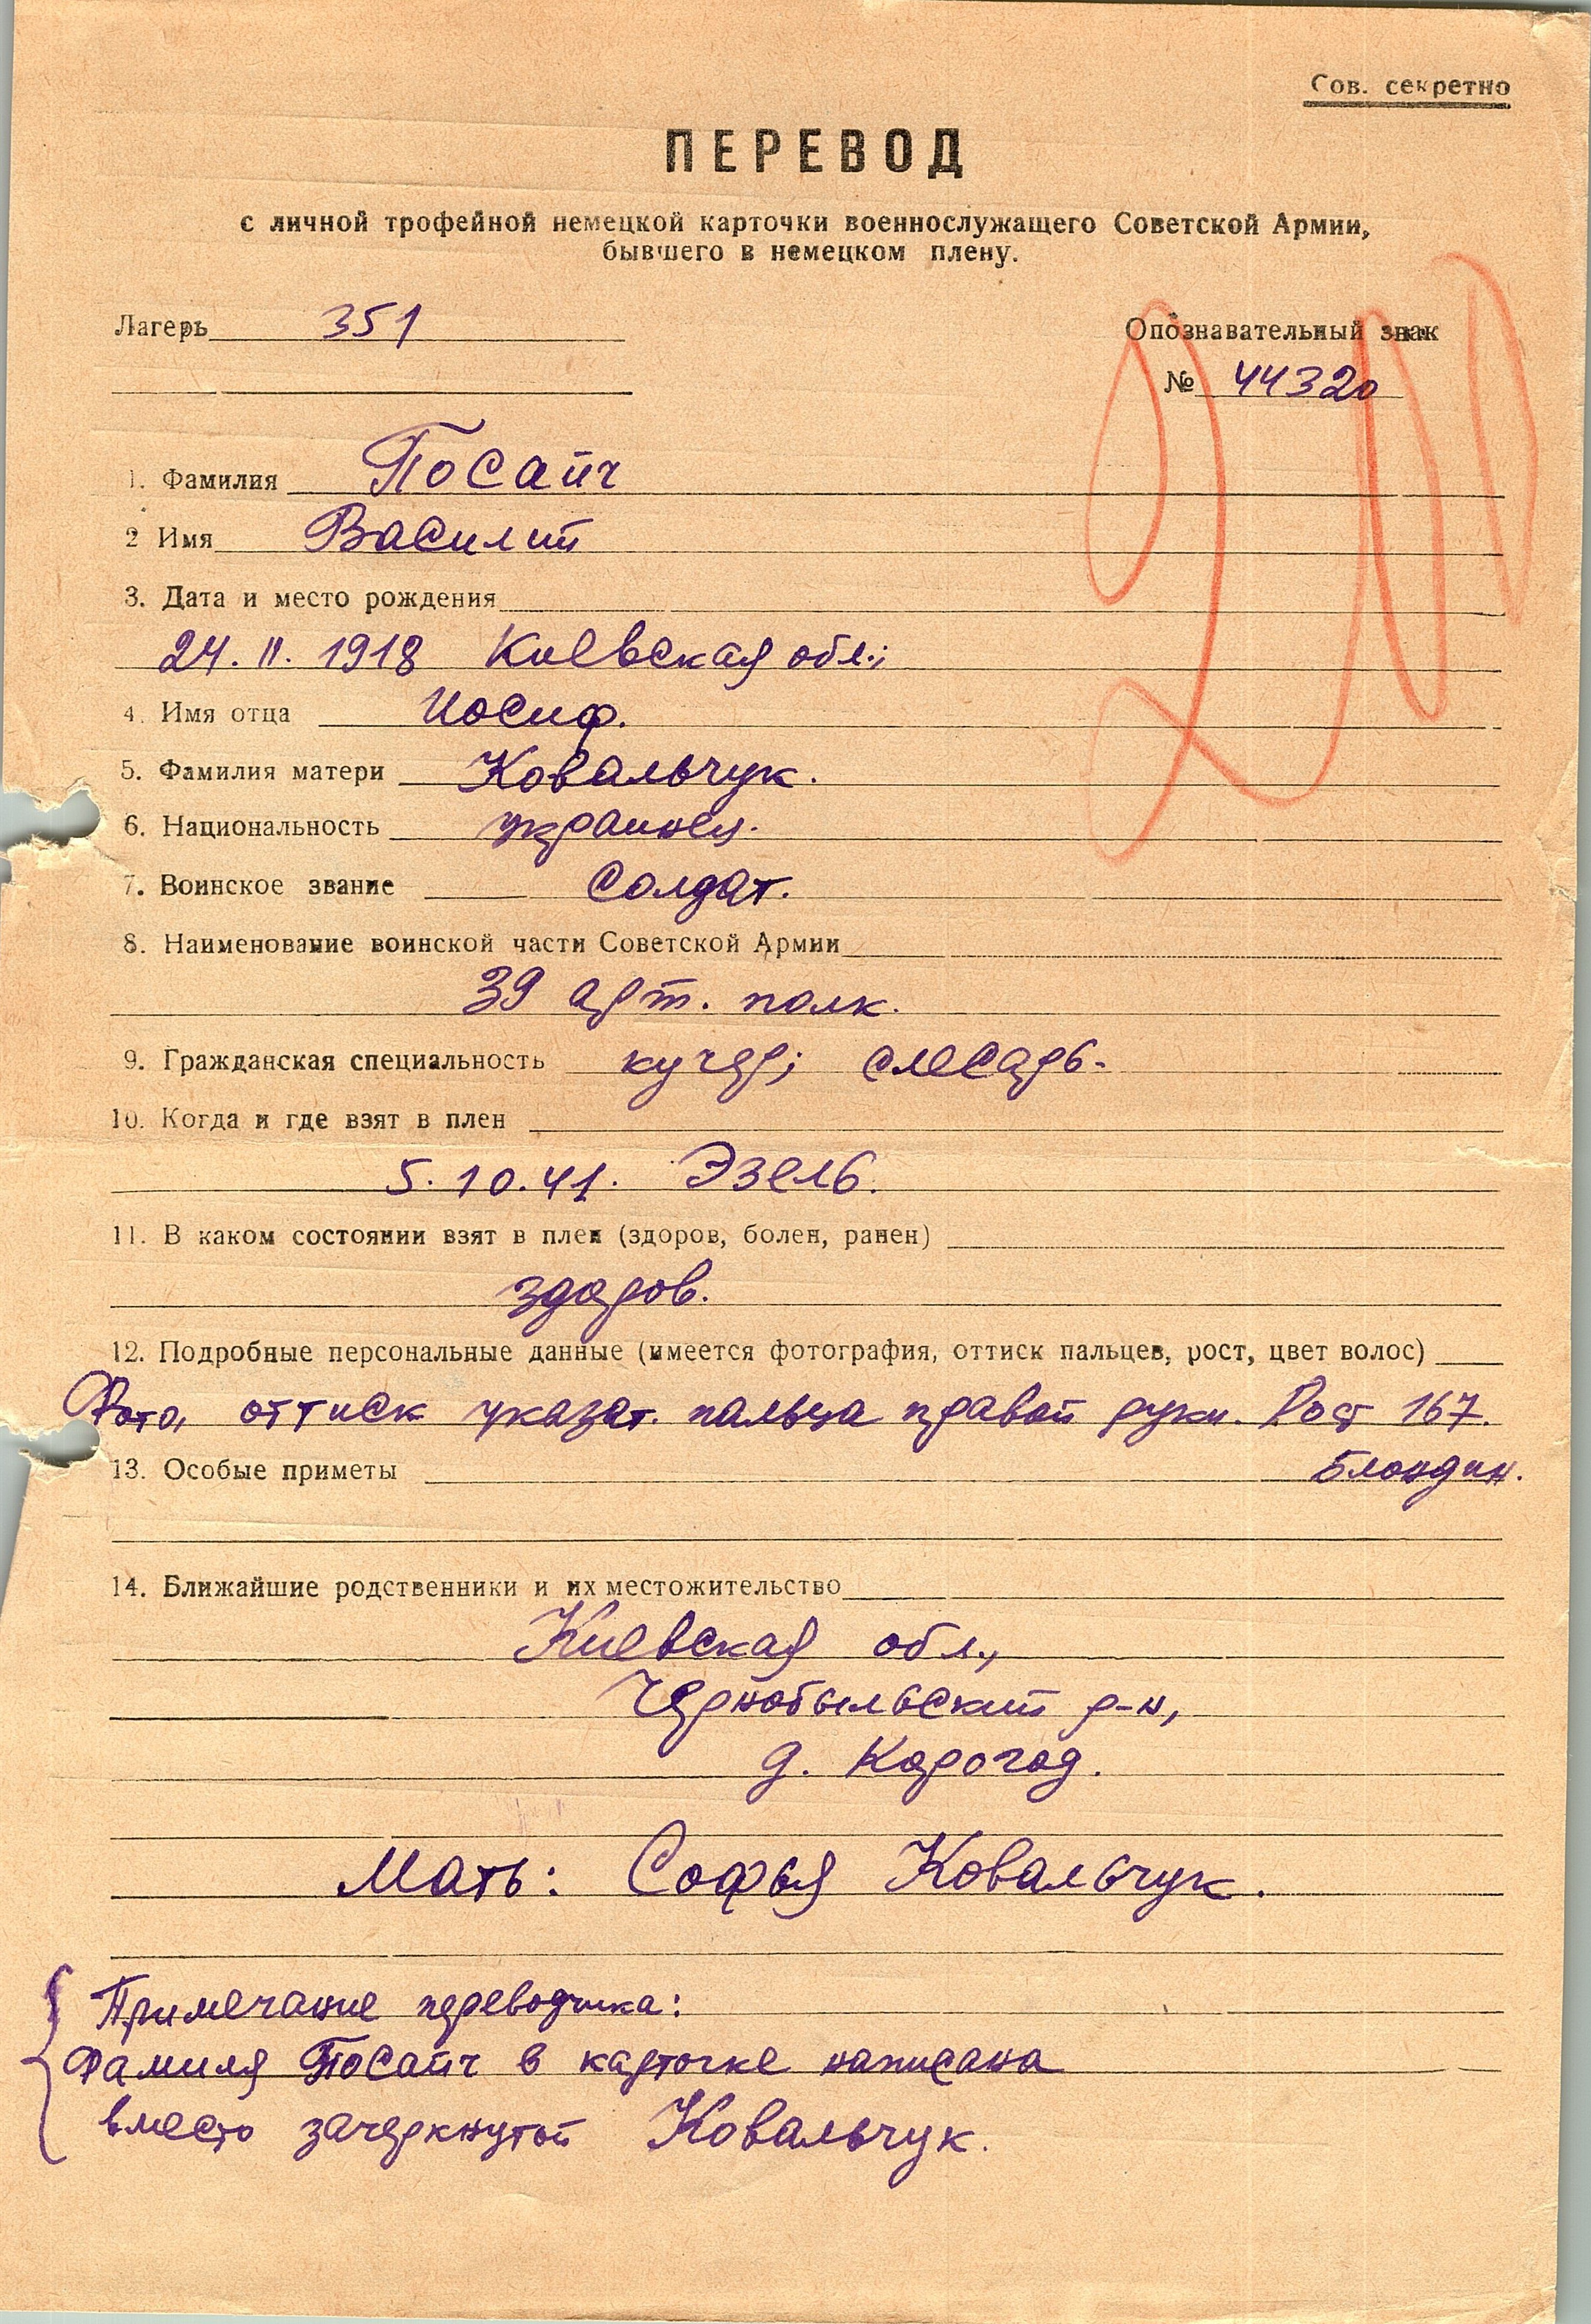 Сов. секретно
ПЕРЕВОД
с личной трофейной немецкой карточки военнослужащего Советской Армии,
бывшего в немецком плену.
Лагерь 351
Опознавательный знак
№ 44320
1. Фамилия Посайч
2 Имя Василий
3. Дата и место рождения
24. II. 1918 Киевская обл.;
4. Имя отца Иосиф.
5. Фамилия матери Ковальчук.
6. Национальность украинец.
7. Воинское звание Солдат.
8. Наименование воинской части Советской Армии
39 арт. полк.
9. Гражданская специальность кучер; слесарь.
10. Когда и где взят в плен
5. 10. 41. Эзель.
11. В каком состоянии взят в плен (здоров, болен, ранен)
здоров.
12. Подробные персональные данные (имеется фотография, оттиск пальцев, рост, цвет волос)
Фото, оттиск указат. пальца правой руки. Рост 167.
Блондин.
13. Особые приметы
14. Ближайшие родственники и их местожительство
Киевская обл.,
Чернобыльский р-н,
д. Корогод.
Мать: Софья Ковальчук.
Примечание переводчика:
Фамиля Посайч в карточке написана
вместо зачеркнутой Ковальчук.